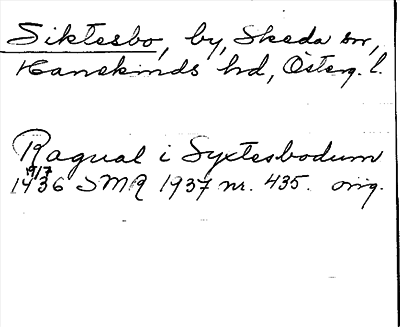 Siktesbo, by, Skeda sn,
Hanekinds hd, Österg. l.
Ragual i Syxtesbodum
19/7
1436 SMR 1937 nr. 435. orig.